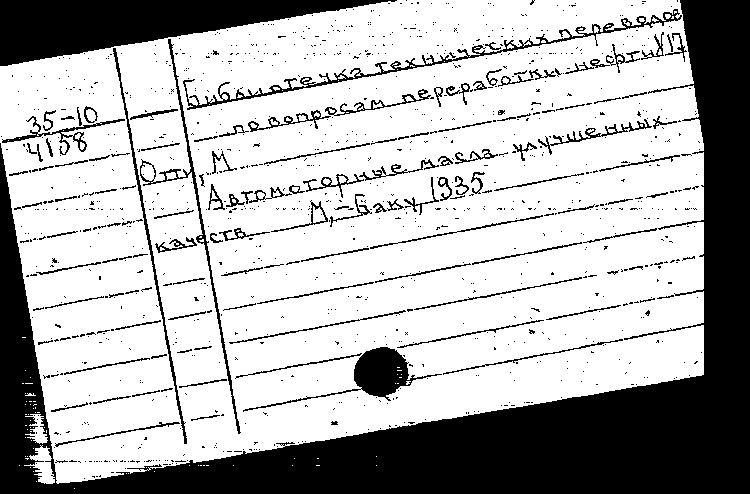 Библиотечка технических переводов
по вопросам переработки нефти №17
35-10
4158
Отт, М
Автомоторные масла улучшенных
качеств М,-Баку, 1935